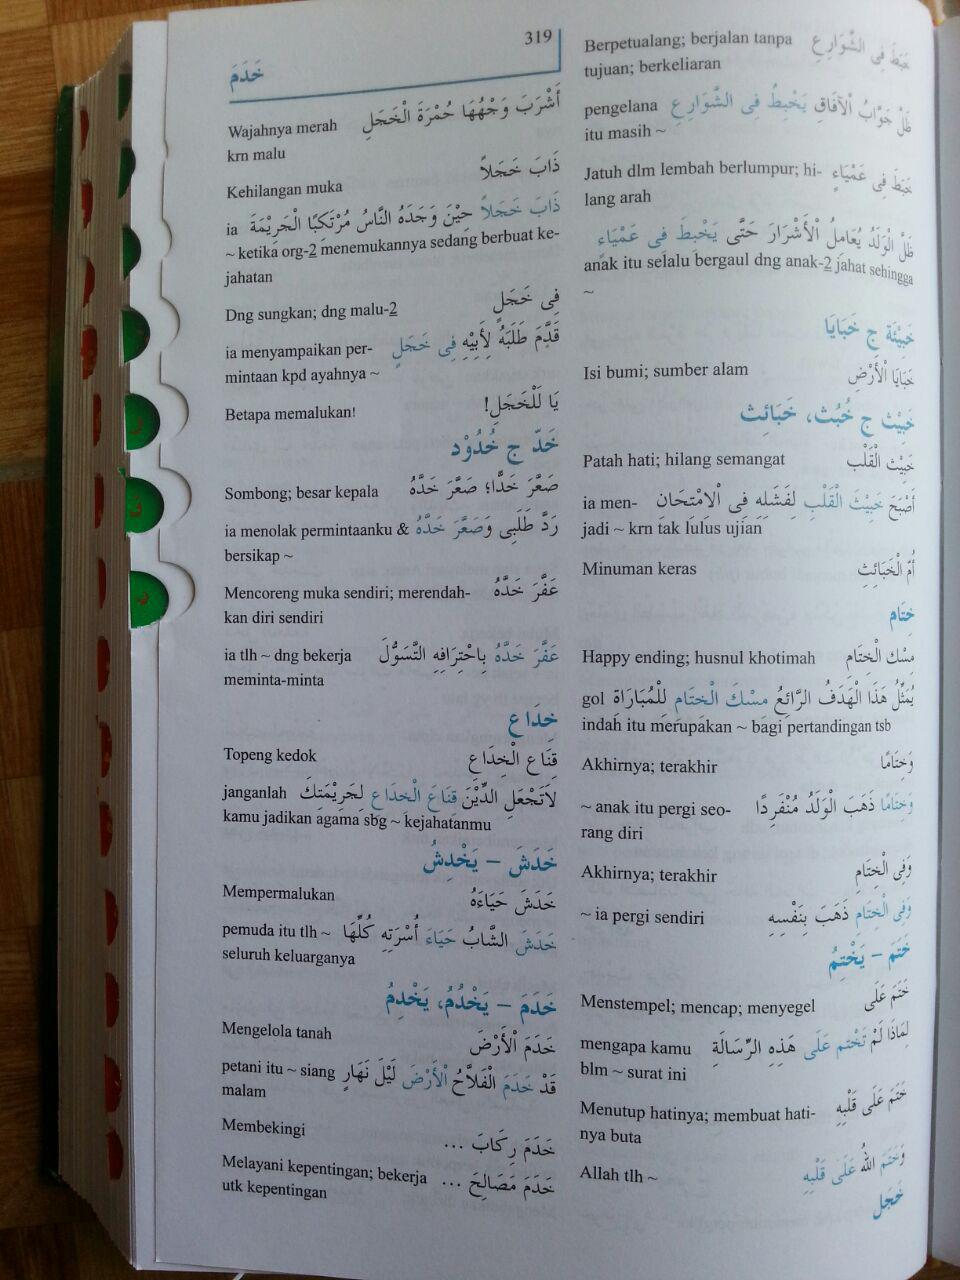 319
خَدَمَ
خَبَطَ فِى الشَّوَارِعِ Berpetualang; berjalan tanpa
tujuan; berkeliaran
ظَلَّ جَوَّابُ اْلآفَاقِ يَخْبِطُ فِى الشَّوَارِعِ pengelana
itu masih ~
خَبَطَ فِى عَمْيَاءٍ Jatuh dlm lembah berlumpur; hi-
lang arah
ظَلَّ الْوَلَدُ يُعَامِلُ اْلأَشْرَارَ حَتَّى يَخْبِطَ فِى عَمْيَاءٍ
anak itu selalu bergaul dng anak-2 jahat sehingga
~
خَبِيْئَة ج خَبَايَا
خَبَايَا اْلأَرْض Isi bumi; sumber alam
خَبِيْث ج خُبُث، خَبَائِث
خَبِيْث الْقَلْب Patah hati; hilang semangat
أَصْبَحَ خَبِيْثَ الْقَلْبِ لِفَشَلِهِ فِى اْلاِمْتِحَان ia men-
jadi ~ krn tak lulus ujian
أُمّ الْخَبَائِثِ Minuman keras
خِتَام
مِسْك الْخِتَام Happy ending; husnul khotimah
يُمَثِّلُ هَذَا الْهَدَفُ الرَّائِعُ مِسْكَ الْخِتَام لِلْمُبَارَاةِ gol
indah itu merupakan ~ bagi pertandingan tsb
وَخِتَامًا Akhirnya; terakhir
وَخِتَامًا ذَهَبَ الْوَلَدُ مُنْفَرِدًا ~ anak itu pergi seo-
rang diri
وَفِى الْخِتَام Akhirnya; terakhir
وَفِى الْخِتَام ذَهَبَ بِنَفْسِهِ ~ ia pergi sendiri
خَتَمَ – يَخْتِمُ
خَتَمَ عَلَى Menstempel; mencap; menyegel
لِمَاذَا لَمْ تَخْتم عَلَى هَذِهِ الرِّسَالَةِ mengapa kamu
blm ~ surat ini
خَتَمَ عَلَى قَلْبِهِ Menutup hatinya; membuat hati-
nya buta
وَخَتَمَ اللهُ عَلَى قَلْبِهِ Allah tlh ~
خَجَل
أَشْرَبَ وَجْهُهَا حُمْرَةَ الْخَجَلِ Wajahnya merah
krn malu
ذَابَ خَجَلاً Kehilangan muka
ذَابَ خَجَلاً حِيْنَ وَجَدَهُ النَّاسُ مُرْتَكِبًا الْجَرِيْمَةَ ia
~ ketika org-2 menemukannya sedang berbuat ke-
jahatan
فِى خَجَلٍ Dng sungkan; dng malu-2
قَدَّمَ طَلَبَهُ لِأَبِيْهِ فِى خَجَلٍ ia menyampaikan per-
mintaan kpd ayahnya ~
يَا لَلْخَجَلِ! Betapa memalukan!
خَدّ ج خُدُوْد
صَعَّرَ خَدًّا؛ صَعَّرَ خَدَّهُ Sombong; besar kepala
رَدَّ طَلَبِى وَصَعَّرَ خَدَّهُ ia menolak permintaanku &
bersikap ~
عَفَّرَ خَدَّهُ Mencoreng muka sendiri; merendah-
kan diri sendiri
عَفَّرَ خَدَّهُ بِاحْتِرَافِهِ التَّسَوُّلَ ia tlh ~ dng bekerja
meminta-minta
خِدَاع
قِنَاع الْخِدَاعِ Topeng kedok
لاَتَجْعَلِ الدِّيْنَ قِنَاعَ الْخِدَاعِ لِجَرِيْمَتِكَ janganlah
kamu jadikan agama sbg ~ kejahatanmu
خَدَشَ – يَخْدِشُ
خَدَشَ حَيَاءَهُ Mempermalukan
خَدَشَ الشَّابُ حَيَاءَ أُسْرَتِهِ كُلِّهَا pemuda itu tlh ~
seluruh keluarganya
خَدَمَ – يَخْدُمُ، يَخْدِمُ
خَدَمَ اْلأَرْضَ Mengelola tanah
قَدْ خَدَمَ الْفَلاَّحُ اْلأَرْضَ لَيْلَ نَهَارٍ petani itu ~ siang
malam
خَدَمَ رِكَابَ ... Membekingi
خَدَمَ مَصَالِحَ ... Melayani kepentingan; bekerja
utk kepentingan